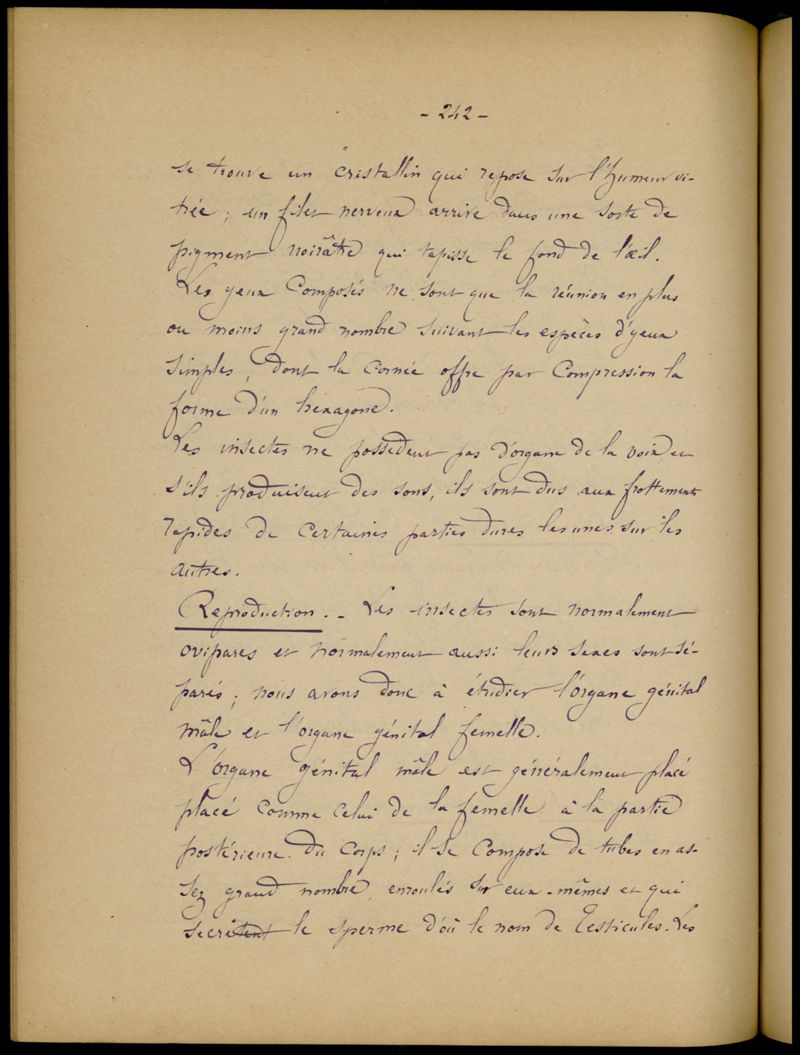 - 242 -
se trouve un cristallin qui repose sur l'humeur vi-
trée ; un filet nerveux arrive dans une sorte de
pigment noirâtre qui tapisse le fond de l'œil.
Les yeux Composés ne sont que la réunion en plus
ou moins grand nombre suivant les espèces d'yeux
simples, dont la Cornée offre par Compression la
forme d'un hexagone.
Les insectes ne possedent pas d'organe de la voix et
s'ils produisent des sons, ils sont dus aux frottements
rapides de certaines parties dures les unes sur les
autres.
Reproduction. - Les insectes sont normalement
ovipares et normalement aussi leurs sexes sont sé-
parés ; nous avons donc à étudier l'organe génital
mâle et l'organe génital femelle.
L'organe génital mâle est généralement placé
placé comme celui de la femelle à la partie
postérieure du corps ; il se compose de tubes en as-
sez grand nombre, enroulés sur eux-mêmes et qui
secrètent le sperme d'où le nom de Testicules. Les